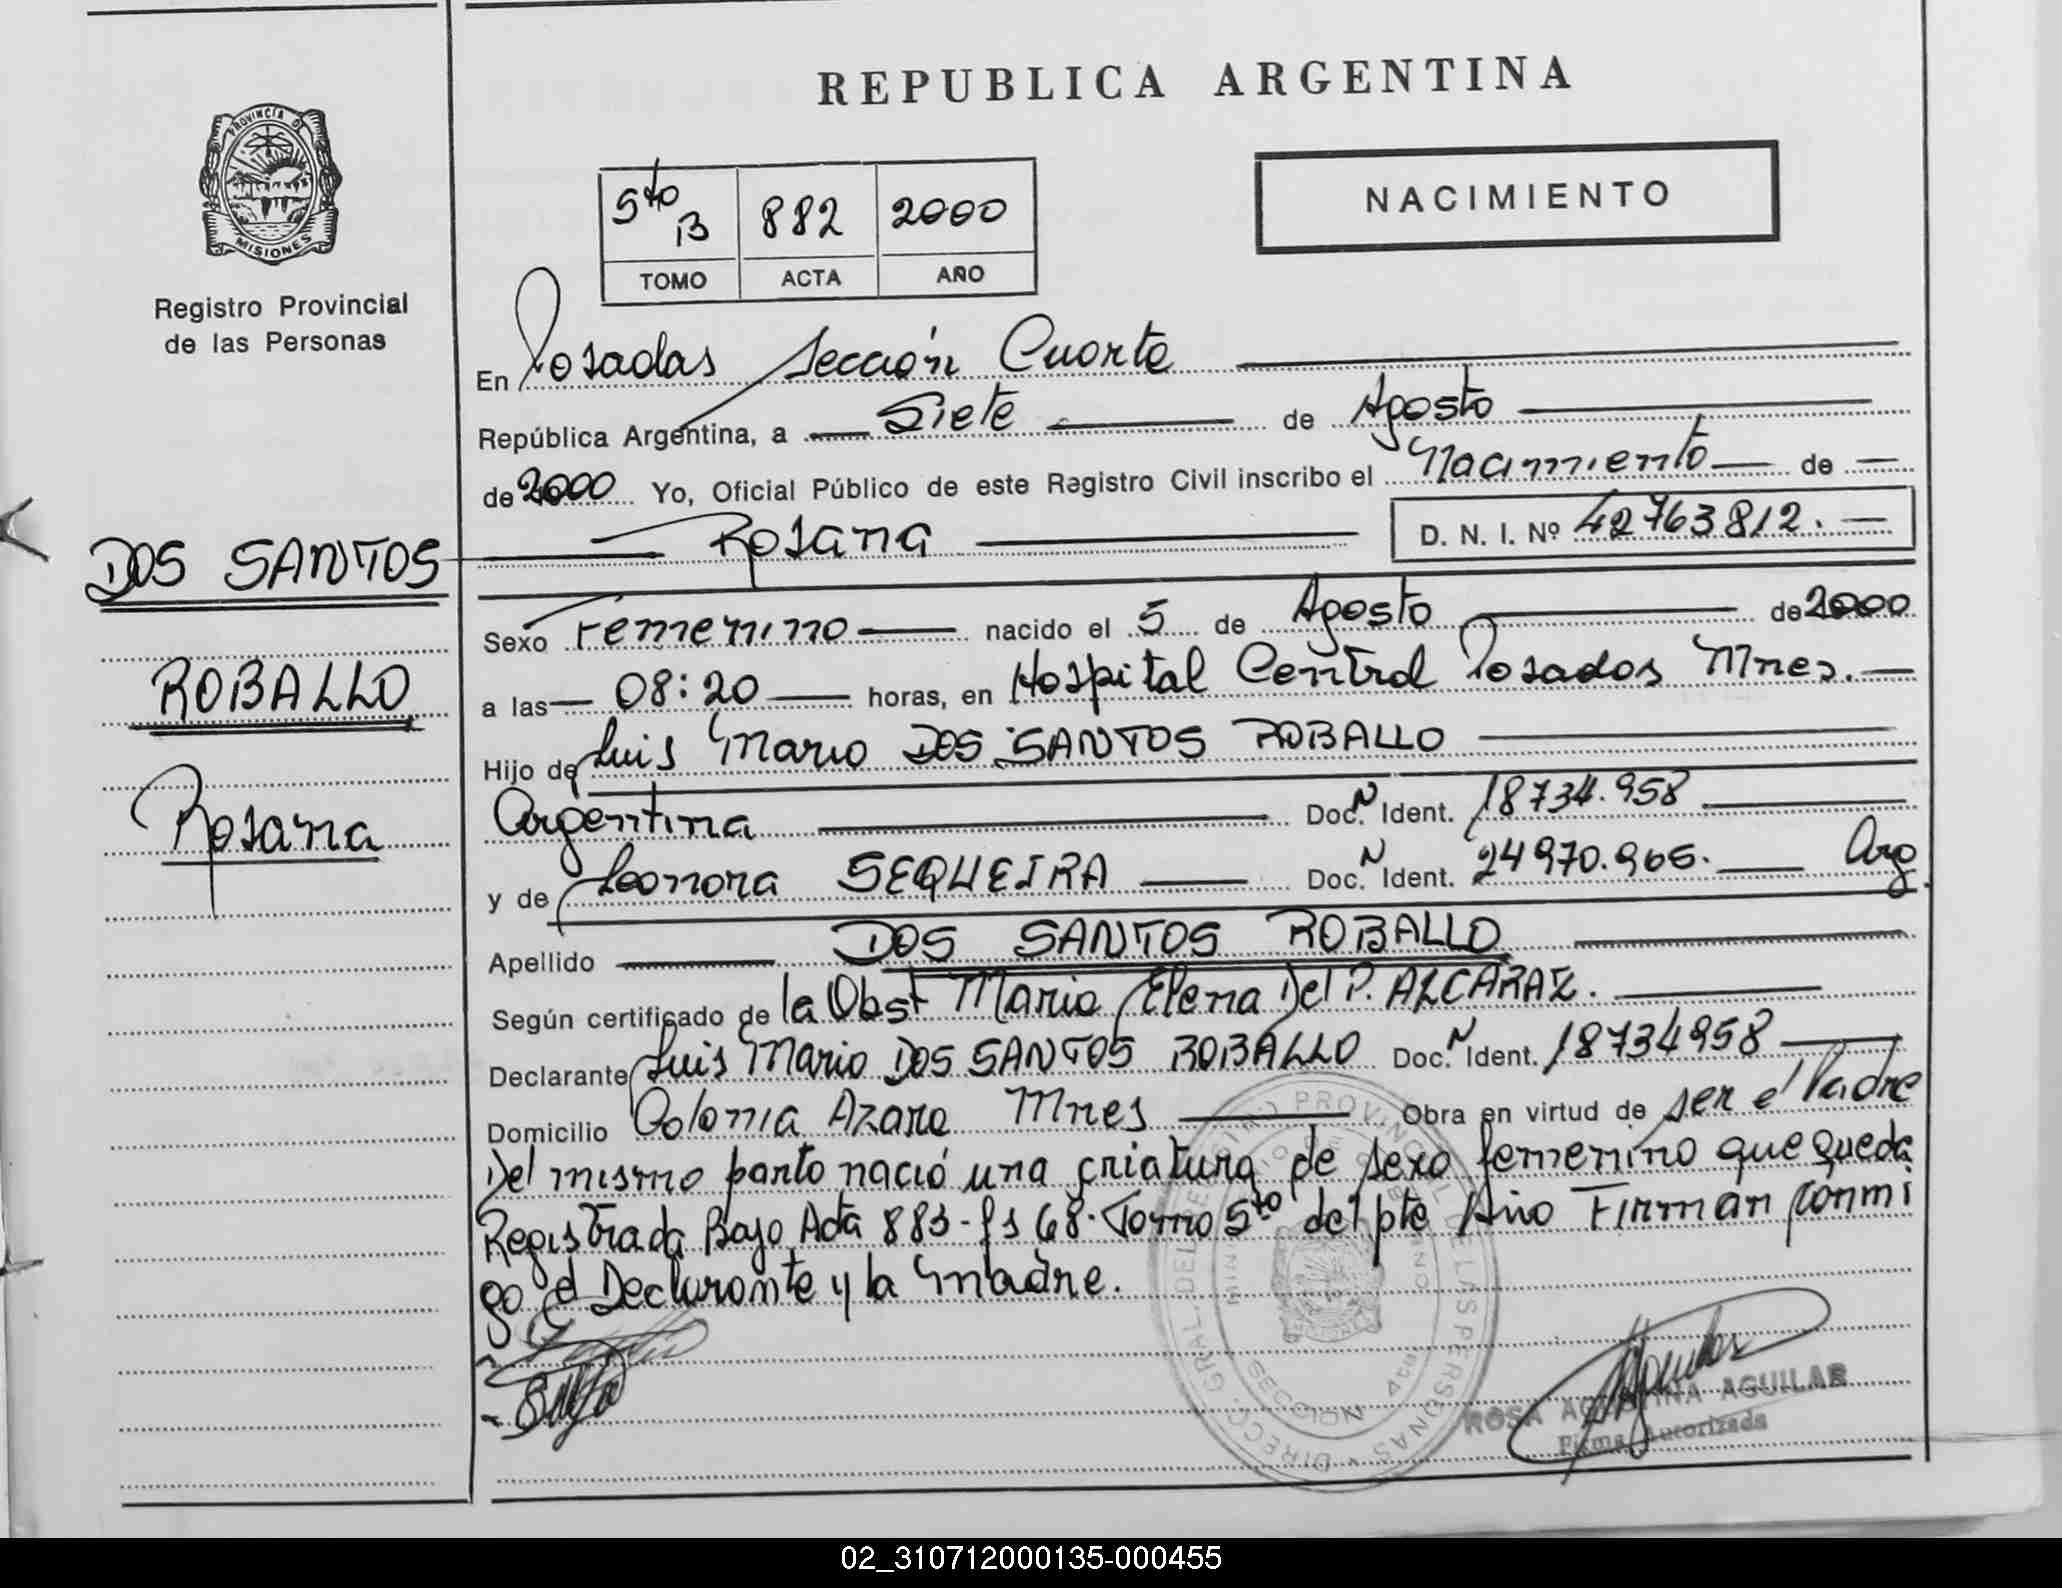 REPUBLICA ARGENTINA
PROVINCIA DE
MISIONES
Registro Provincial
de las Personas
NACIMIENTO
5to B 882 2000
TOMO ACTA AÑO
En Posadas Sección Cuarta
República Argentina, a Siete de Agosto
de 2000 Yo, Oficial Público de este Registro Civil inscribo el Nacimiento de
Rosana D. N. I. Nº 42763812.
DOS SANTOS
ROBALLO
Rosana
Sexo Femenino nacido el 5 de Agosto de 2000
a las 08:20 horas, en Hospital Central Posadas Mnes.
Hijo de Luis Mario DOS SANTOS ROBALLO
Argentina Doc. N Ident. 18734.958
y de Leonora SEQUEIRA Doc. N Ident. 24970.965. Arg.
Apellido DOS SANTOS ROBALLO
Según certificado de la Obst Maria Elena Del P. ALCARAZ.
Declarante Luis Mario DOS SANTOS ROBALLO Doc. N Ident. 18734958
Domicilio Colonia Azara Mnes Obra en virtud de ser el Padre
Del mismo parto nació una criatura de sexo femenino que queda
Registrada Bajo Acta 883 - fs 68. Tomo 5to del pte Año Firman conmi
go el Declarante y la Madre.
DIRECC. GRAL. DEL REGISTRO PROVINCIAL DE LAS PERSONAS
MINISTERIO DE GOBIERNO
SECCION 4ta
ROSA AGUSTINA AGUILAR
Firma Autorizada
02_310712000135-000455